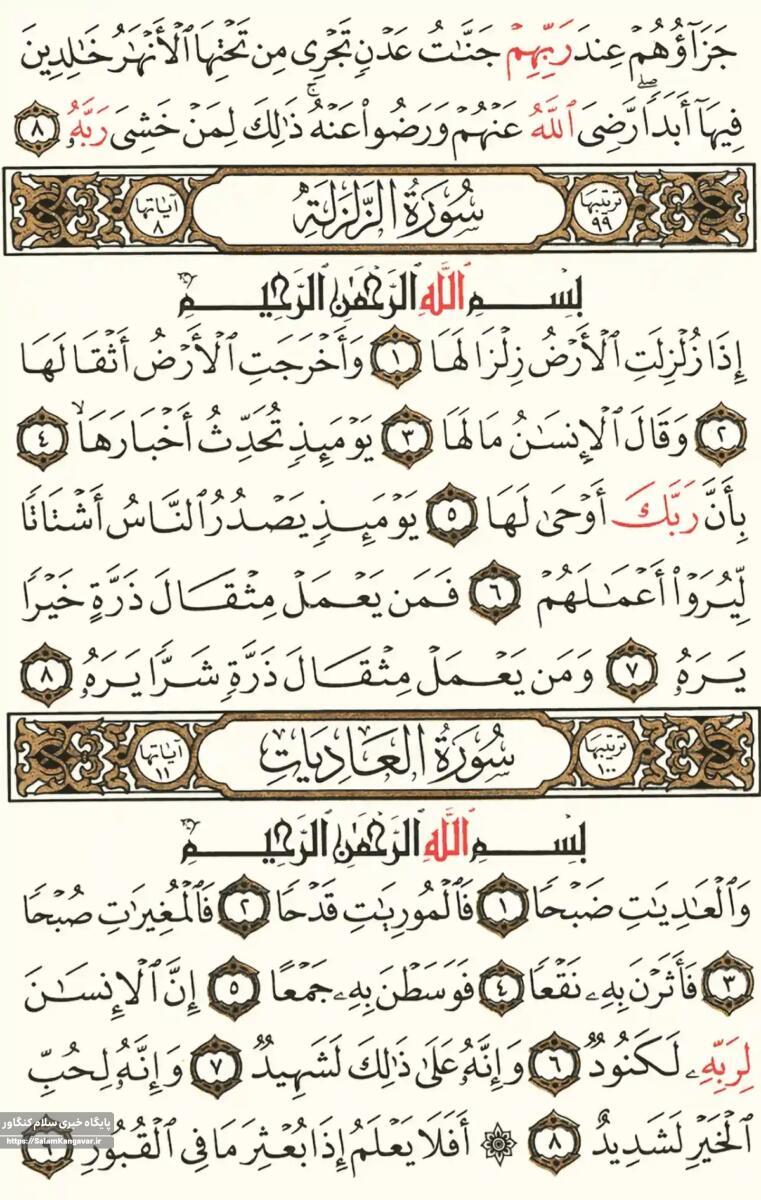 جَزَآؤُهُمۡ عِندَ رَبِّهِمۡ جَنَّٰتُ عَدۡنٖ تَجۡرِي مِن تَحۡتِهَا ٱلۡأَنۡهَٰرُ خَٰلِدِينَ
فِيهَآ أَبَدٗاۖ رَّضِيَ ٱللَّهُ عَنۡهُمۡ وَرَضُواْ عَنۡهُۚ ذَٰلِكَ لِمَنۡ خَشِيَ رَبَّهُۥ ٨
ترتيبها ٩٩ سُورَةُ الزَّلزَلة آياتها ٨
بِسۡمِ ٱللَّهِ ٱلرَّحۡمَٰنِ ٱلرَّحِيمِ
إِذَا زُلۡزِلَتِ ٱلۡأَرۡضُ زِلۡزَالَهَا ١ وَأَخۡرَجَتِ ٱلۡأَرۡضُ أَثۡقَالَهَا
٢ وَقَالَ ٱلۡإِنسَٰنُ مَا لَهَا ٣ يَوۡمَئِذٖ تُحَدِّثُ أَخۡبَارَهَا ٤
بِأَنَّ رَبَّكَ أَوۡحَىٰ لَهَا ٥ يَوۡمَئِذٖ يَصۡدُرُ ٱلنَّاسُ أَشۡتَاتٗا
لِّيُرَوۡاْ أَعۡمَٰلَهُمۡ ٦ فَمَن يَعۡمَلۡ مِثۡقَالَ ذَرَّةٍ خَيۡرٗا
يَرَهُۥ ٧ وَمَن يَعۡمَلۡ مِثۡقَالَ ذَرَّةٖ شَرّٗا يَرَهُۥ ٨
ترتيبها ١٠٠ سُورَةُ العَاديَاتِ آياتها ١١
بِسۡمِ ٱللَّهِ ٱلرَّحۡمَٰنِ ٱلرَّحِيمِ
وَٱلۡعَٰدِيَٰتِ ضَبۡحٗا ١ فَٱلۡمُورِيَٰتِ قَدۡحٗا ٢ فَٱلۡمُغِيرَٰتِ صُبۡحٗا
٣ فَأَثَرۡنَ بِهِۦ نَقۡعٗا ٤ فَوَسَطۡنَ بِهِۦ جَمۡعًا ٥ إِنَّ ٱلۡإِنسَٰنَ
لِرَبِّهِۦ لَكَنُودٞ ٦ وَإِنَّهُۥ عَلَىٰ ذَٰلِكَ لَشَهِيدٞ ٧ وَإِنَّهُۥ لِحُبِّ
ٱلۡخَيۡرِ لَشَدِيدٌ ٨ ۞ أَفَلَا يَعۡلَمُ إِذَا بُعۡثِرَ مَا فِي ٱلۡقُبُورِ ٩
پایگاه خبری سلام کنگاور
https://SalamKangavar.ir